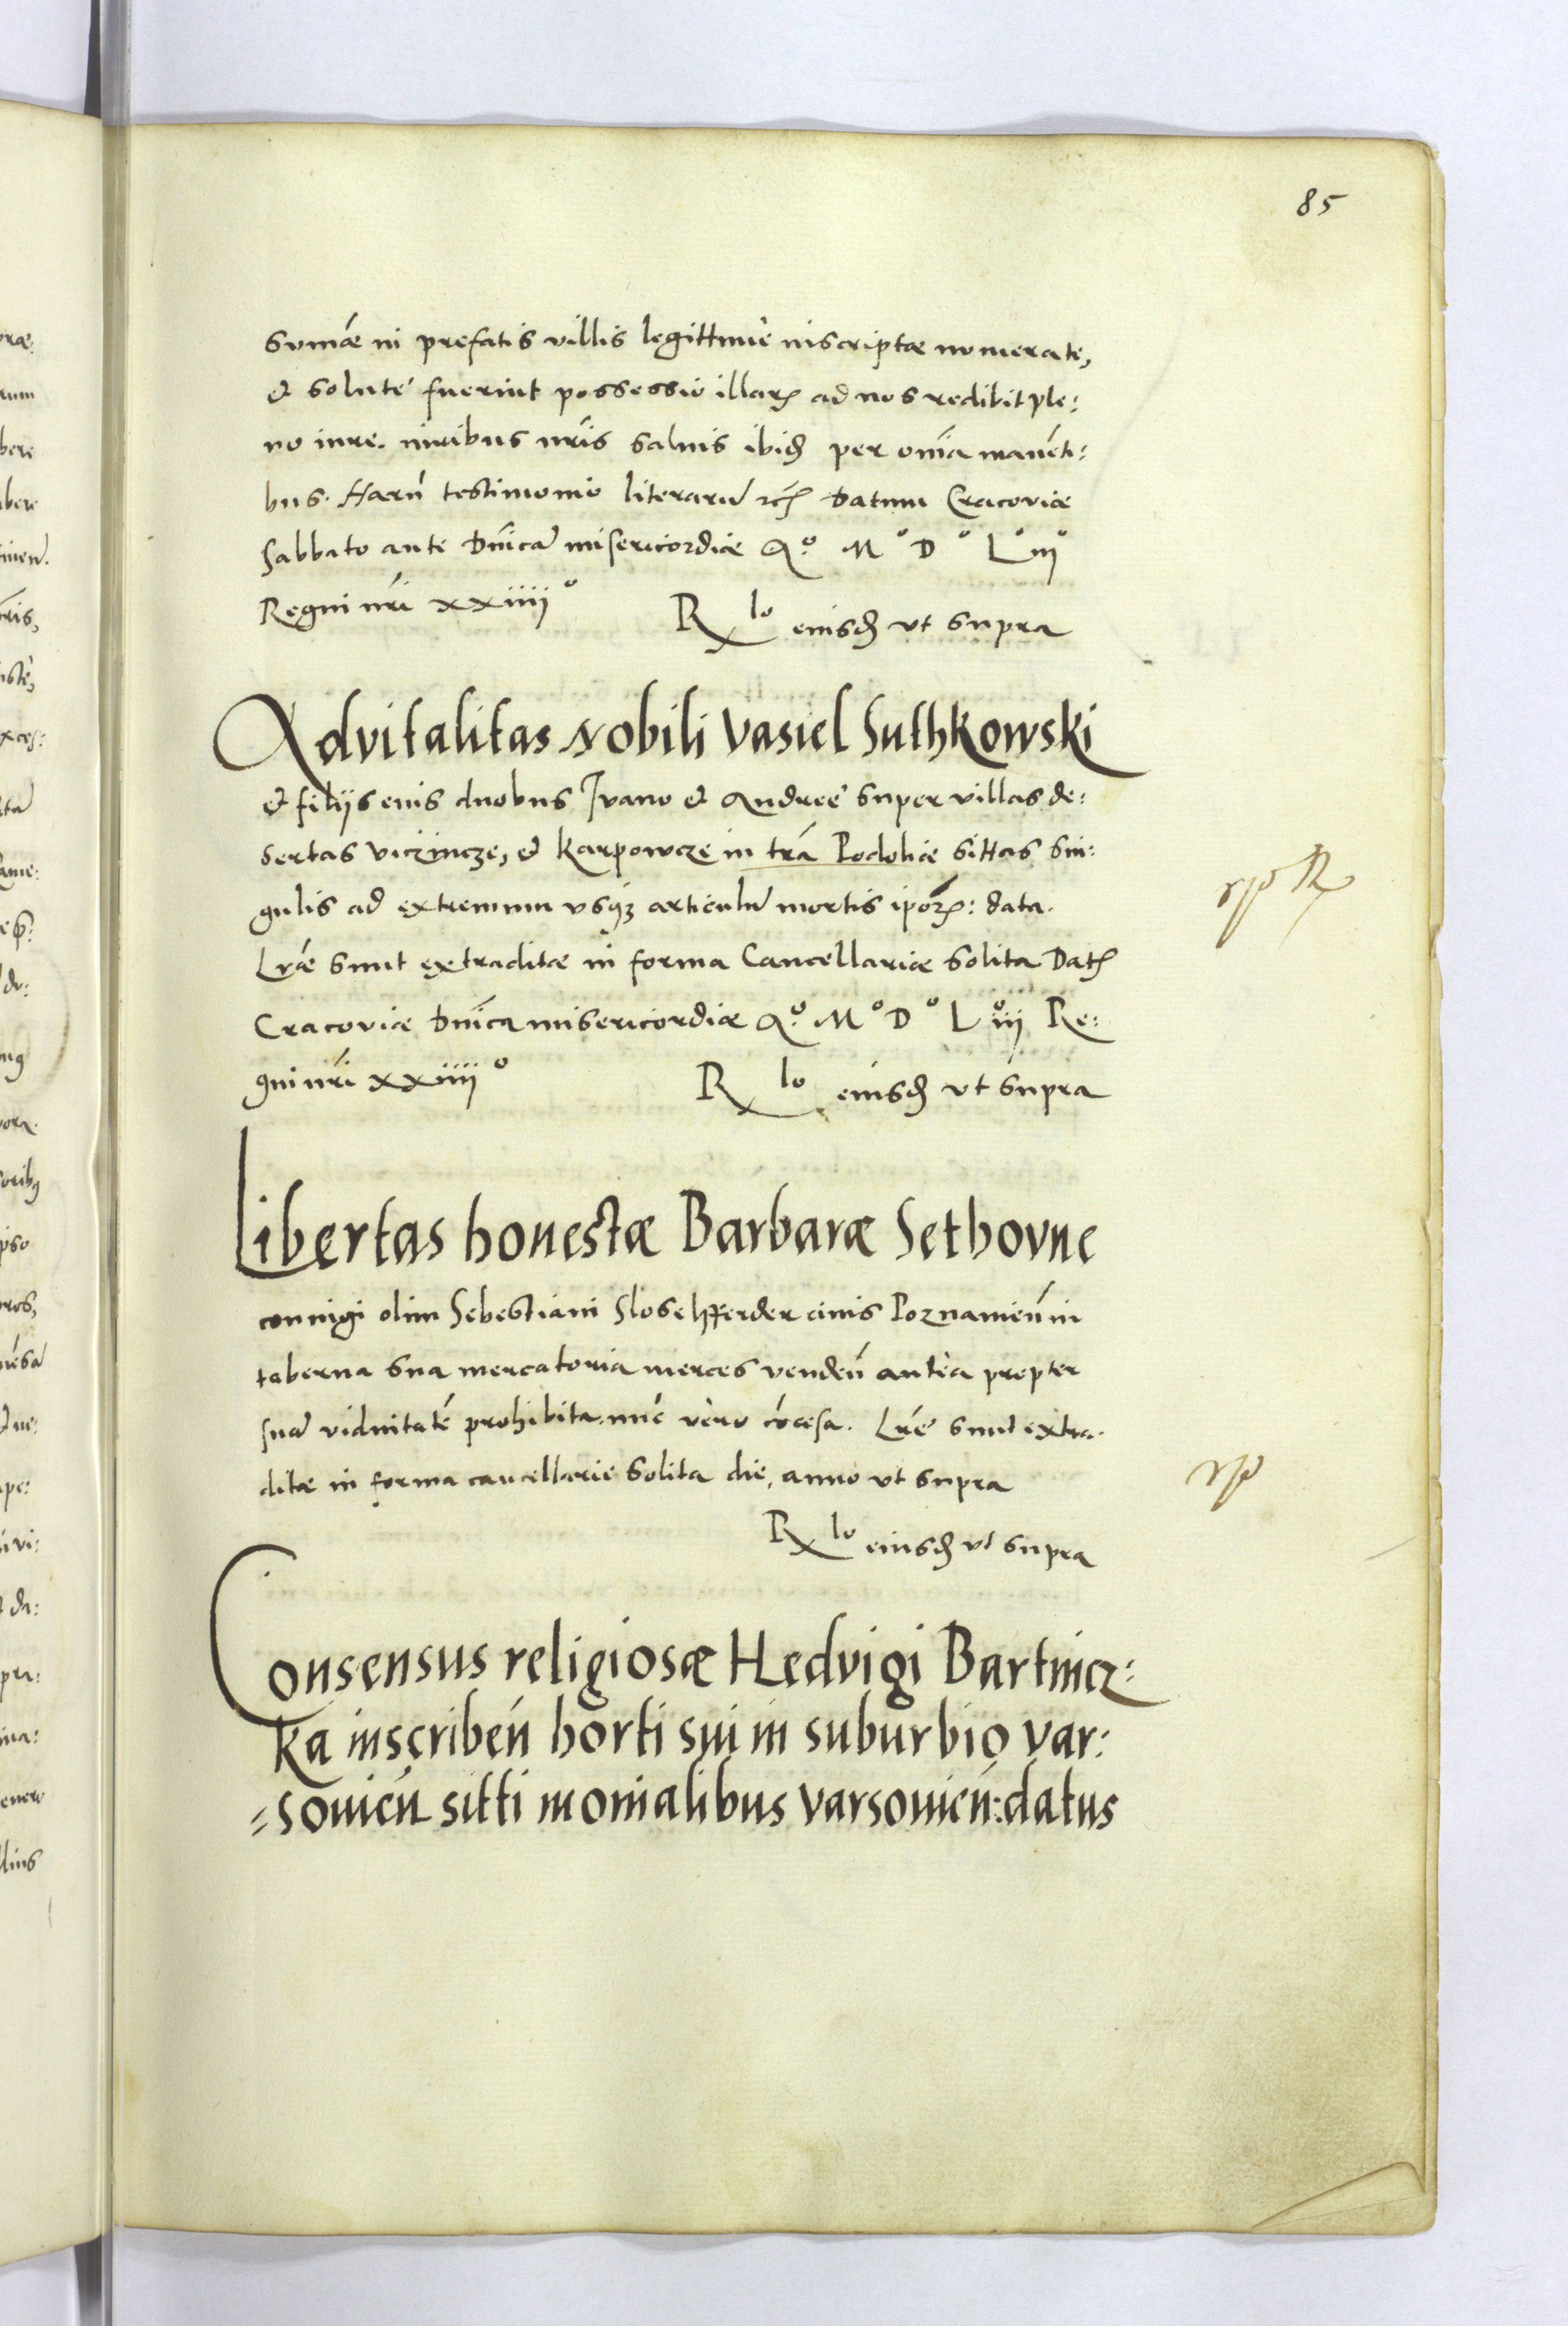 85
sum̄æ in prefatis villis legittimè inscriptæ numerate,
& solutè fuerint possessio illarꝝ ad nos redibit ple:
no iure. iuribus nr̄is saluis ibidꝫ per om̄ia manēti:
bus. Harū testimonio literarū rcꝫ Datum Cracoviæ
Sabbato ante Dn̄icā misericordiæ Aº. Mº Dº Lº iiiº
Regni nr̄i xxiiiiº
Rlo eiusdꝫ vt supra
Advitalitas Nobili Vasiel Suthkowski
& filijs euis duobus Ivano & Andreè super villas de:
sertas Viczincze, & Karpowcze in trā Podoliæ sittas sin:
gulis ad extremum usqꝫ articulū mortis ipōrꝝ: data.
Lr̄æ sunt extraditæ in forma Cancellariæ solita Datꝫ
Cracoviæ Dn̄ica misericordiæ Aº. Mº Dº Lº iij Re:
gni nr̄i xxiiiiº
Rlo eiusdꝫ vt supra
Libertas honestæ Barbaræ Sethovne
coniugi olim Sebestiani Slosehfferder ciuis Poznanień in
taberna sua mercatoria merces vendeń antèa propter
suā viduitatē prohibita. nūc vèro cōcesa. Lr̄e sunt extra
ditæ in forma cancellarie solita die, anno vt supra
Rlo eiusdꝫ vt supra
Consensus religiosæ Hedvigi Bartnicz:
ka inscribeń horti sui in suburbio var:
=souień sitti monialibus varsouień: datus